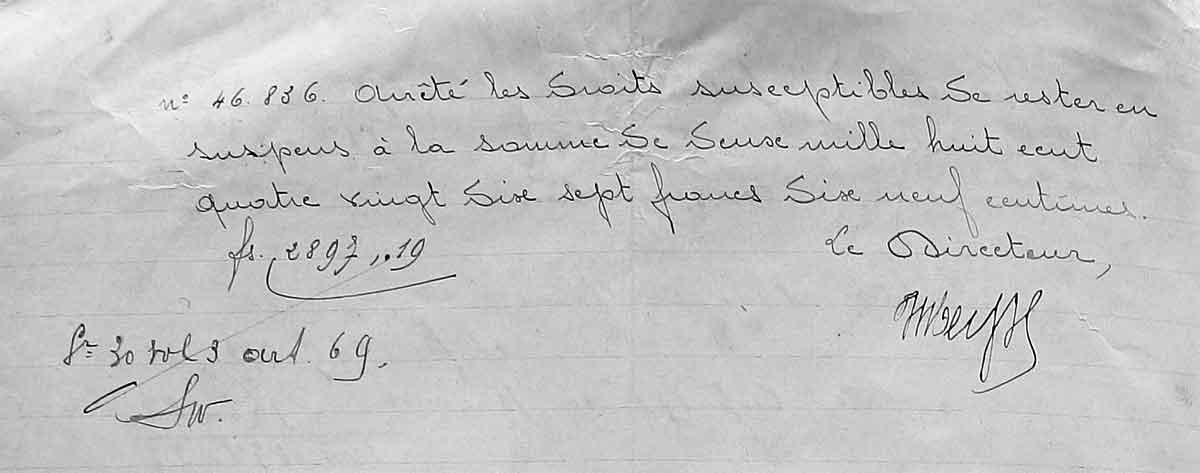 n° 46.836. Arrêté les droits susceptibles de rester en
suspens à la somme de deux mille huit cent
quatre vingt dix sept francs dix neuf centimes.
fs. 2897,19
Le Directeur,
vol 3 art. 69.